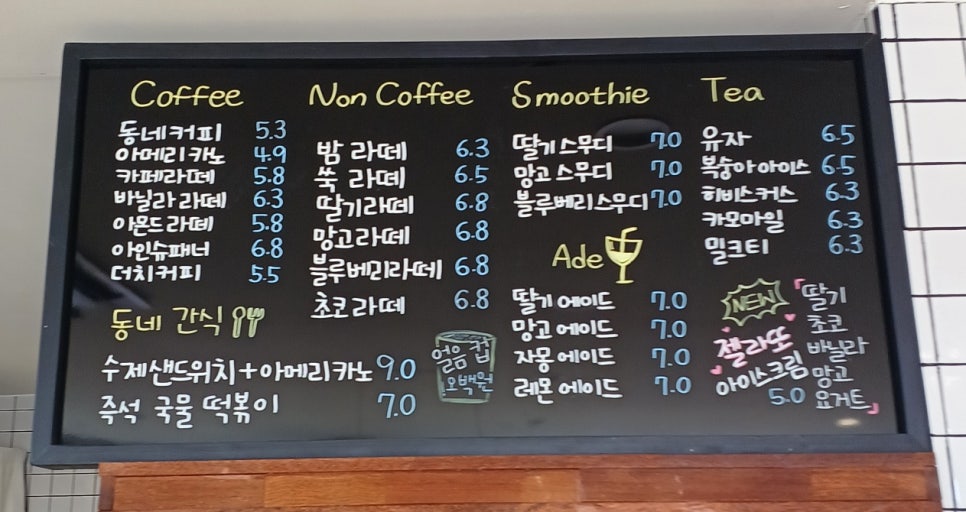 Coffee
동네커피 5.3
아메리카노 4.9
카페라떼 5.8
바닐라 라떼 6.3
아몬드라떼 5.8
아인슈패너 6.8
더치커피 5.5
동네 간식
수제샌드위치+아메리카노 9.0
즉석 국물 떡볶이 7.0
Non Coffee
밤 라떼 6.3
쑥 라떼 6.5
딸기라떼 6.8
망고라떼 6.8
블루베리라떼 6.8
초코라떼 6.8
얼음 컵
오백원
Smoothie
딸기스무디 7.0
망고 스무디 7.0
블루베리스무디 7.0
Ade
딸기 에이드 7.0
망고 에이드 7.0
자몽 에이드 7.0
레몬 에이드 7.0
Tea
유자 6.5
복숭아 아이스 6.5
히비스커스 6.3
카모마일 6.3
밀크티 6.3
NEW
젤라또
아이스크림
5.0
「딸기
초코
바닐라
망고
요거트」